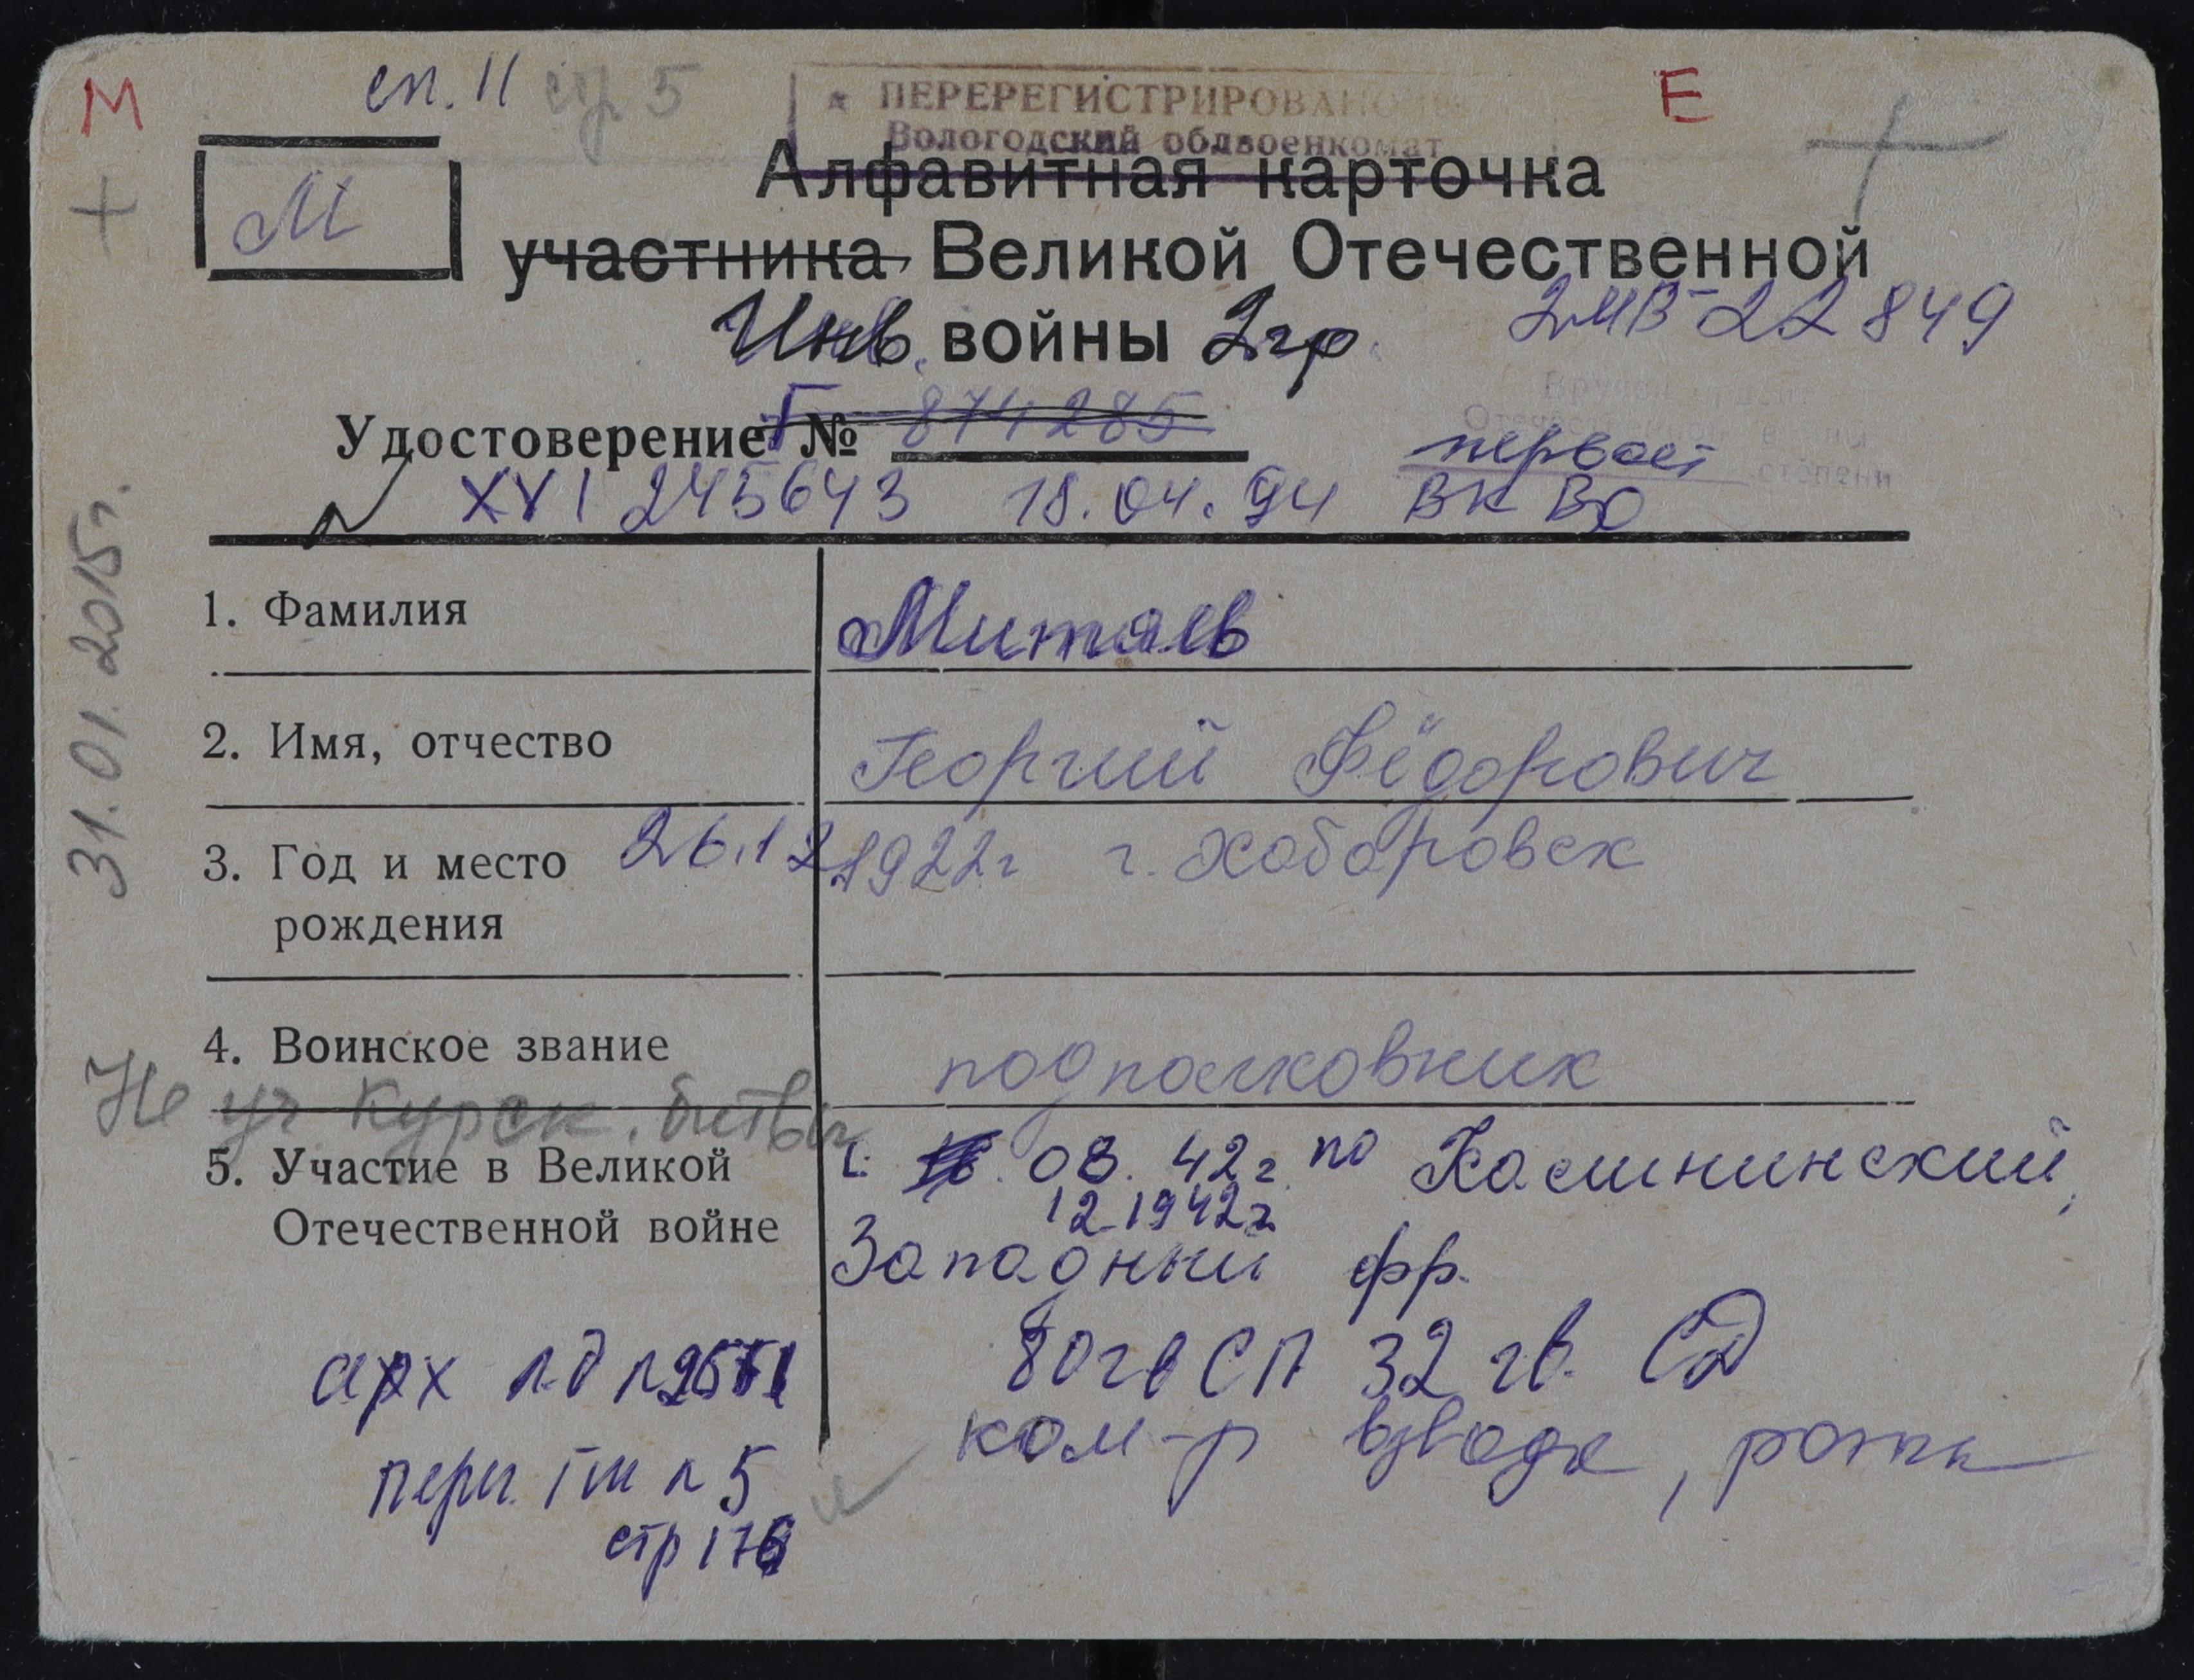 М сп. 11 стр 5 ПЕРЕРЕГИСТРИРОВАНО Е
Вологодский облвоенкомат
М
Алфавитная карточка
участника Великой Отечественной
Инв. войны 2гр.
Удостоверение Г № 874285
первой степени
XVI 245643 18.04.94 ВК ВО
31.01.2015г.
1. Фамилия Митяев
2. Имя, отчество Георгий Фёдорович
3. Год и место рождения 26.12.1922г г. Хабаровск
4. Воинское звание подполковник
Не уч Курск. битвы
5. Участие в Великой Отечественной войне
с 08. 42г. по Калининский,
12.1942г
Западный фр.
80 гв СП 32 гв. СД
ком-р взвода, роты
арх л.д
стр 176